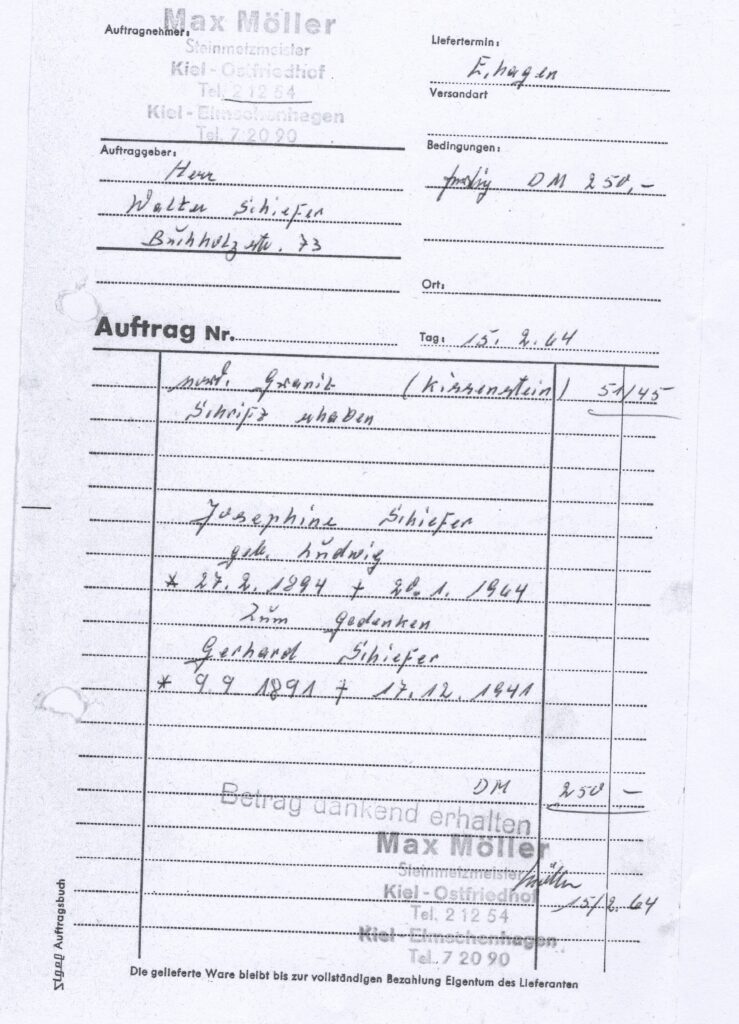 Auftragnehmer:
Max Möller
Steinmetzmeister
Kiel - Ostfriedhof
Tel. 2 12 54
Kiel - Elmschenhagen
Tel. 7 20 90
Liefertermin:
E. hagen
Versandart
Auftraggeber:
Herr
Walter Schiefer
Buchholzstr. 73
Bedingungen:
DM 250,-
Ort:
Auftrag Nr.
Tag: 15. 2. 64
nord. Granit (Kissenstein) 51/45
Schrift erhaben
Josephine Schiefer
geb. Ludwig
* 27. 2. 1894 † 20. 1. 1964
Zum Gedenken
Gerhard Schiefer
* 9 9 1891 † 17. 12. 1941
DM 250 -
Betrag dankend erhalten
Max Möller
Steinmetzmeister
Kiel - Ostfriedhof
Tel. 2 12 54
15/2. 64
Kiel - Elmschenhagen
Tel. 7 20 90
Auftragsbuch
Die gelieferte Ware bleibt bis zur vollständigen Bezahlung Eigentum des Lieferanten